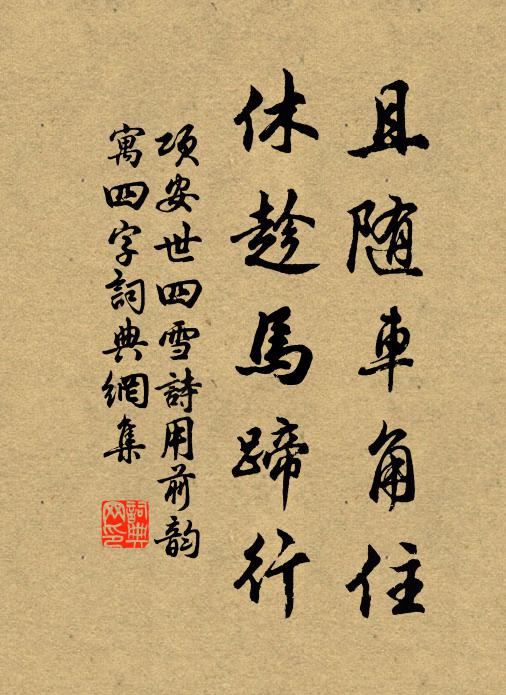 且随車角住
休趁馬蹄行
项安世四雪詩用前韵
寓四字詞典網集
詞典
网印